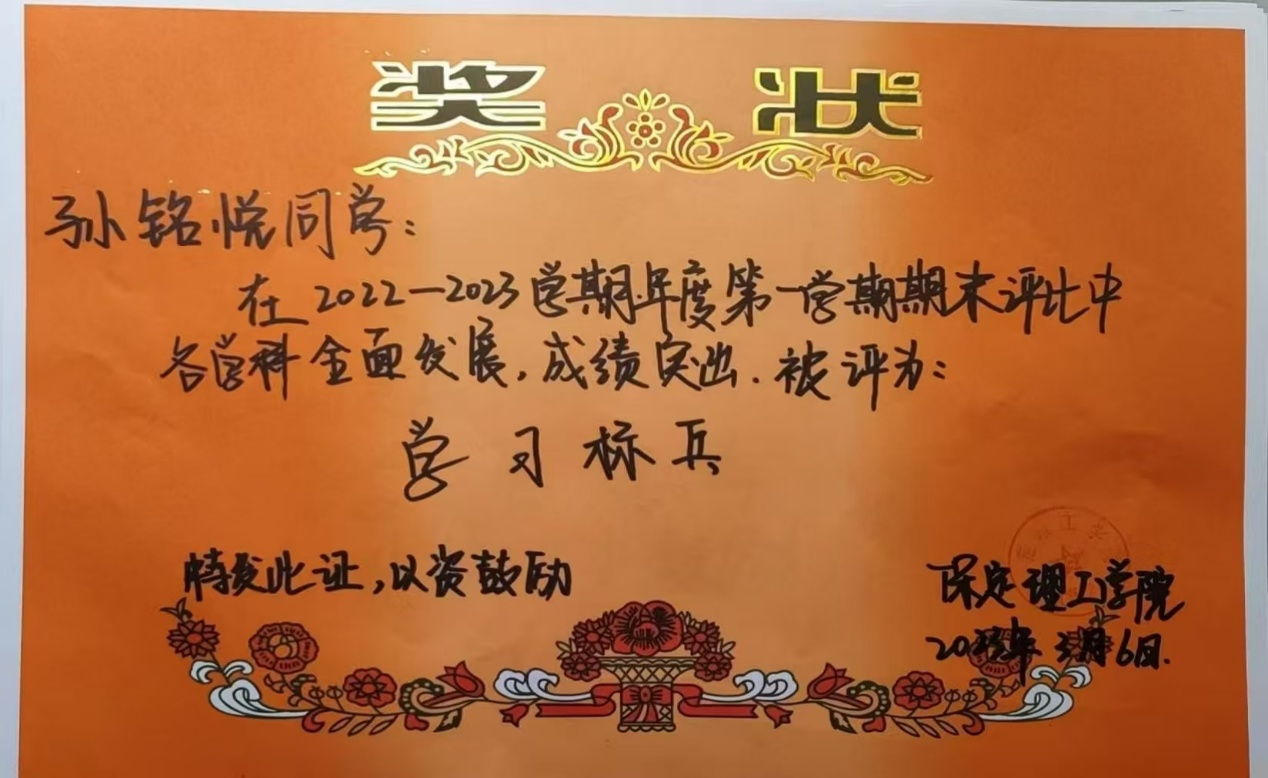 奖状
孙铭悦同学:
在2022—2023学期年度第一学期期末评比中
各学科全面发展,成绩突出.被评为:
学习标兵
特发此证,以资鼓励
保定理工学院
2023年3月6日.